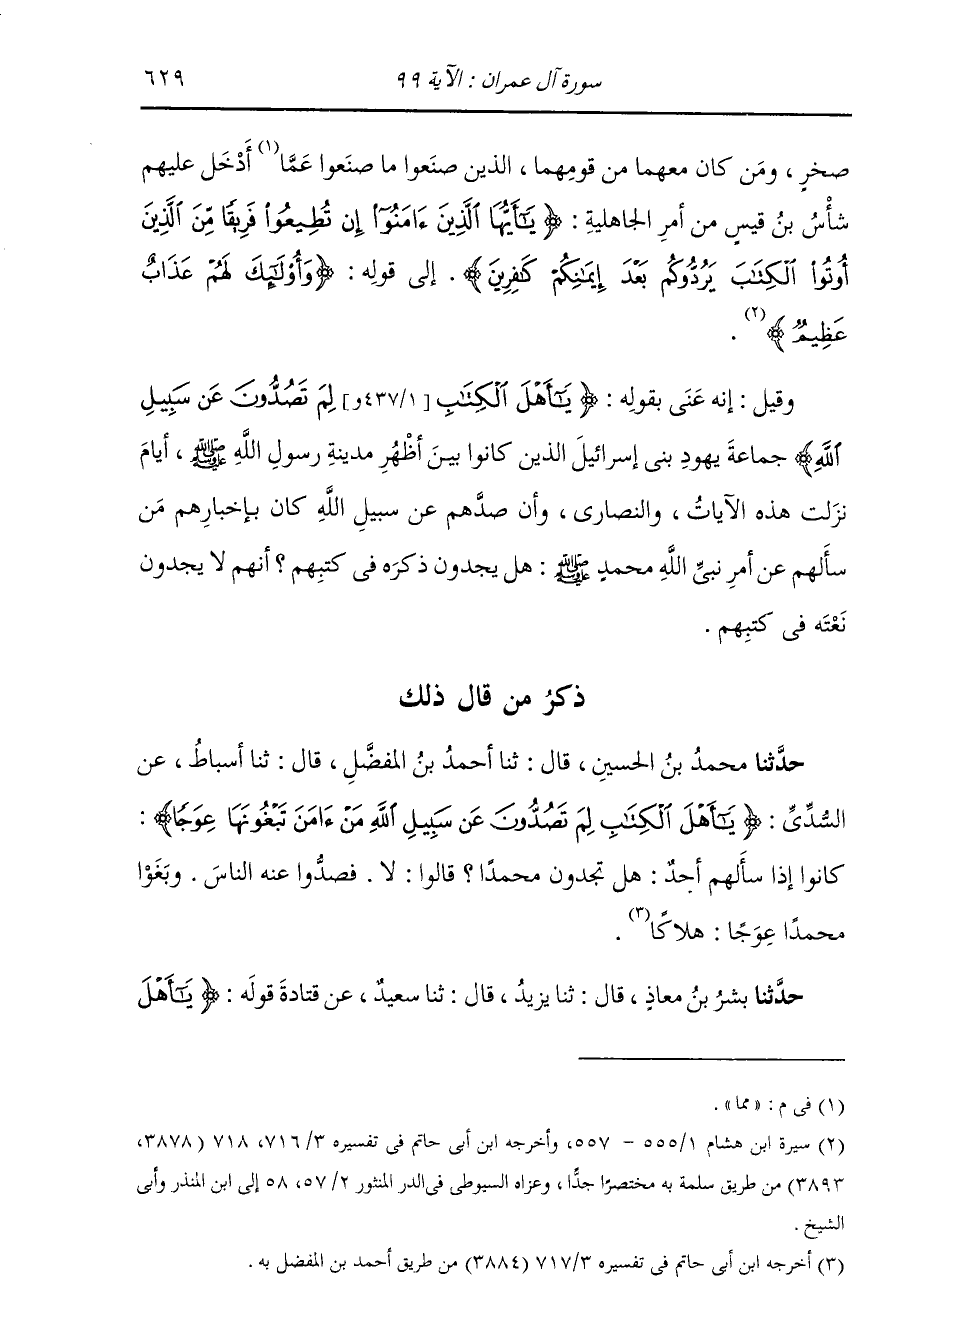 سورة آل عمران : الآية ٩٩ ٦٢٩
صخرٍ ، ومَن كان معهما من قومِهما ، الذين صنَعوا ما صنَعوا عَمَّا(١) أَدْخَل عليهم
شأْسُ بنُ قيسٍ من أمرِ الجاهليةِ : ﴿ يَٰٓأَيُّهَا ٱلَّذِينَ ءَامَنُوٓا۟ إِن تُطِيعُوا۟ فَرِيقًا مِّنَ ٱلَّذِينَ
أُوتُوا۟ ٱلْكِتَٰبَ يَرُدُّوكُم بَعْدَ إِيمَٰنِكُمْ كَٰفِرِينَ ﴾ . إلى قولِه : ﴿ وَأُو۟لَٰٓئِكَ لَهُمْ عَذَابٌ
عَظِيمٌ ﴾(٢) .
وقيل : إنه عَنَى بقولِه : ﴿ يَٰٓأَهْلَ ٱلْكِتَٰبِ [ ٤٣٧/١و] لِمَ تَصُدُّونَ عَن سَبِيلِ
ٱللَّهِ ﴾ جماعةَ يهودِ بنى إسرائيلَ الذين كانوا بينَ أظْهُرِ مدينةِ رسولِ اللَّهِ ﷺ ، أيامَ
نزَلت هذه الآياتُ ، والنصارى ، وأن صدَّهم عن سبيلِ اللَّهِ كان بإخبارِهم مَن
سأَلهم عن أمرِ نبيِّ اللَّهِ محمدٍ ﷺ : هل يجدون ذكرَه فى كتبِهم ؟ أنهم لا يجدون
نَعْتَه فى كتبِهم .
ذكرُ من قال ذلك
حدَّثنا محمدُ بنُ الحسينِ ، قال : ثنا أحمدُ بنُ المفضَّلِ ، قال : ثنا أسباطُ ، عن
السُّدِّىِّ : ﴿ يَٰٓأَهْلَ ٱلْكِتَٰبِ لِمَ تَصُدُّونَ عَن سَبِيلِ ٱللَّهِ مَنْ ءَامَنَ تَبْغُونَهَا عِوَجًا ﴾ :
كانوا إذا سأَلهم أحدٌ : هل تجدون محمدًا ؟ قالوا : لا . فصدُّوا عنه الناسَ . وبَغَوْا
محمدًا عِوَجًا : هلاكًا(٣) .
حدَّثنا بشرُ بنُ معاذٍ ، قال : ثنا يزيدُ ، قال : ثنا سعيدٌ ، عن قتادةَ قولَه : ﴿ يَٰٓأَهْلَ
(١) فى م : « مما » .
(٢) سيرة ابن هشام ٥٥٥/١ - ٥٥٧، وأخرجه ابن أبى حاتم فى تفسيره ٧١٦/٣، ٧١٨ (٣٨٧٨،
٣٨٩٣) من طريق سلمة به مختصرًا جدًّا ، وعزاه السيوطى فى الدر المنثور ٥٧/٢، ٥٨ إلى ابن المنذر وأبى
الشيخ .
(٣) أخرجه ابن أبى حاتم فى تفسيره ٧١٧/٣ (٣٨٨٤) من طريق أحمد بن المفضل به .